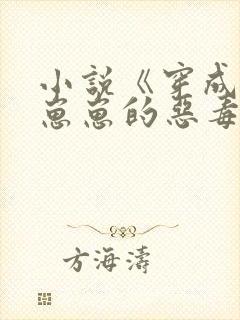 小说《穿成
崽崽的恶毒
方海涛